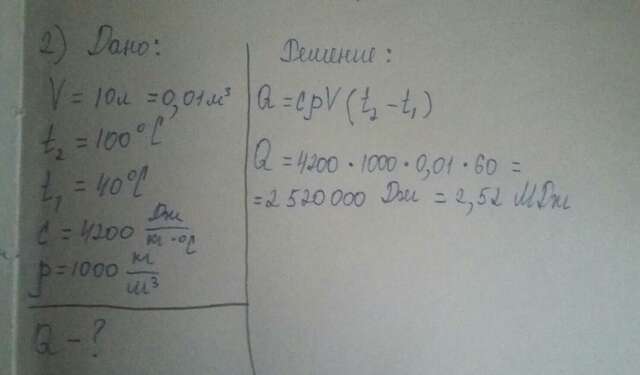 2) Дано:
V = 10л = 0,01 м³
t₂ = 100°C
t₁ = 40°C
c = 4200 Дж/кг·°C
ρ = 1000 кг/м³
Q - ?
Решение:
Q = cρV(t₂ - t₁)
Q = 4200 · 1000 · 0,01 · 60 =
= 2 520 000 Дж = 2,52 МДж